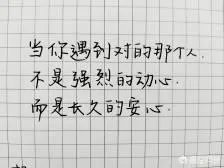 当你遇到对的那个人.
不是强烈的动心.
而是长久的安心.